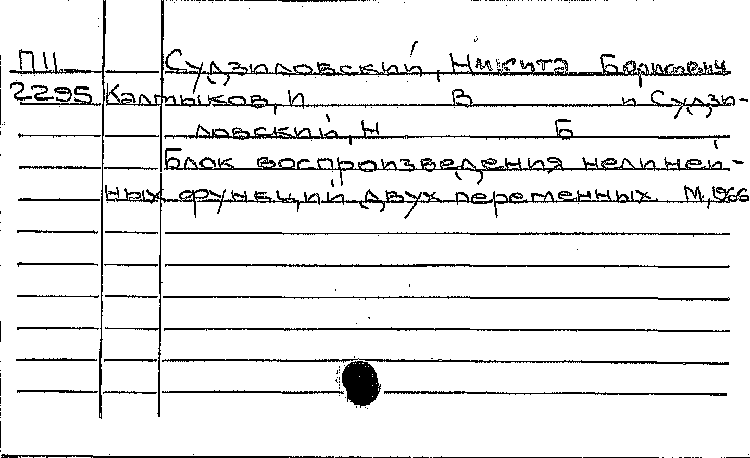 П11 Судзиловский, Никита Борисович
2295 Калтыков, И В и Судзи-
ловский, Н Б
Блок воспроизведения нелиней-
ных функций двух переменных М, 1966